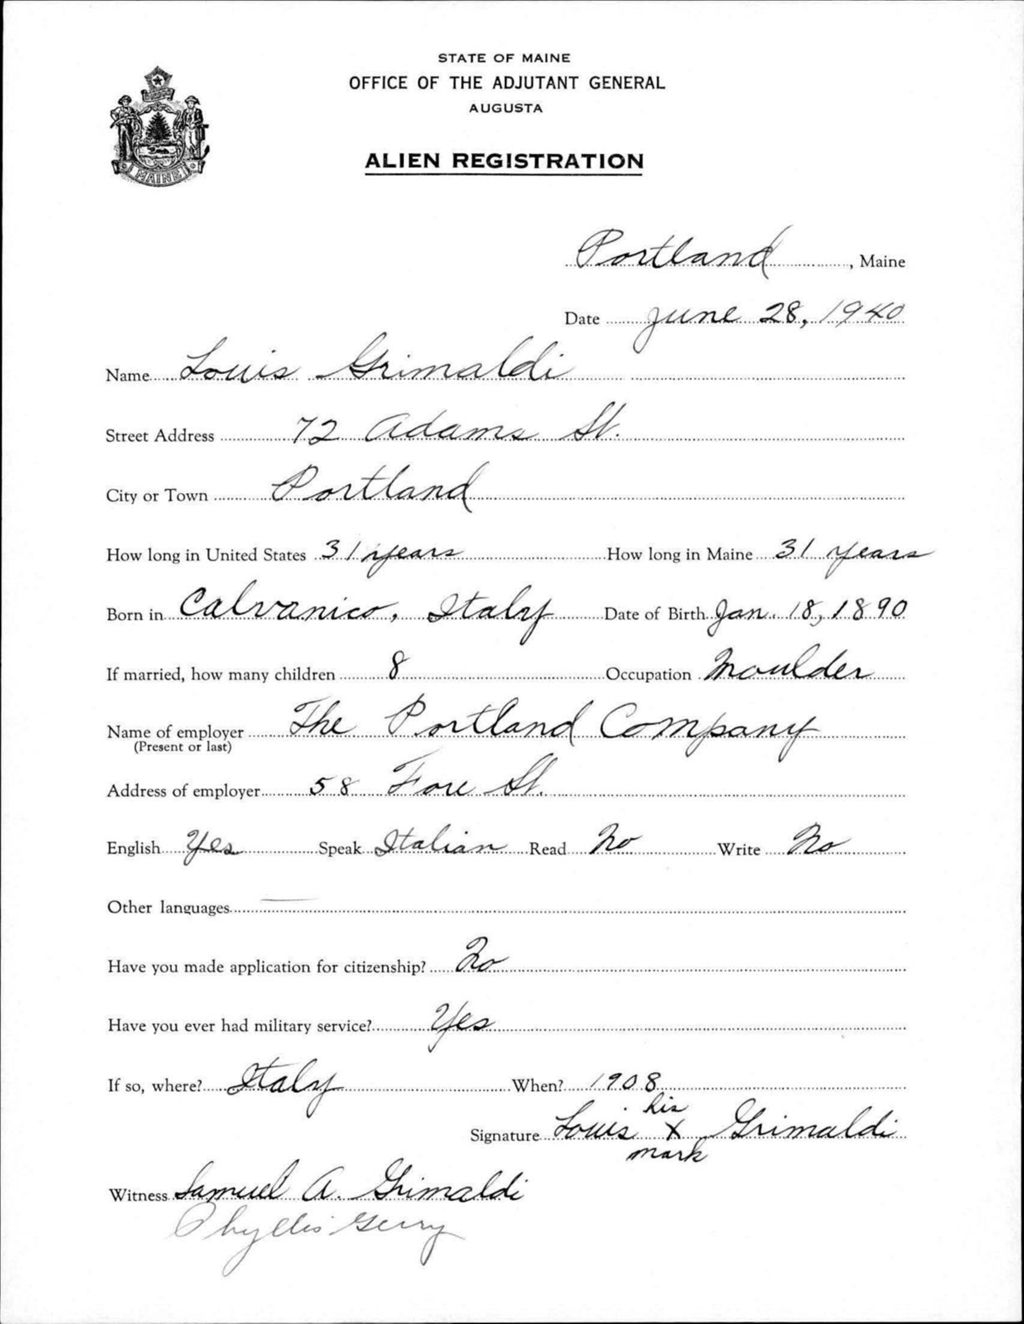 STATE OF MAINE
OFFICE OF THE ADJUTANT GENERAL
AUGUSTA
ALIEN REGISTRATION
MAINE
Portland, Maine
Date June 28, 1940
Name Louis Grimaldi
Street Address 72 Adams St.
City or Town Portland
How long in United States 31 years How long in Maine 31 years
Born in Calvanico, Italy Date of Birth Jan. 18, 1890
If married, how many children 8 Occupation Moulder
Name of employer The Portland Company
(Present or last)
Address of employer 58 Fore St.
English Yes Speak Italian Read No Write No
Other languages —
Have you made application for citizenship? No
Have you ever had military service? Yes
If so, where? Italy When? 1908
his
Signature Louis X Grimaldi
mark
Witness Samuel A. Grimaldi
Phyllis Gerry